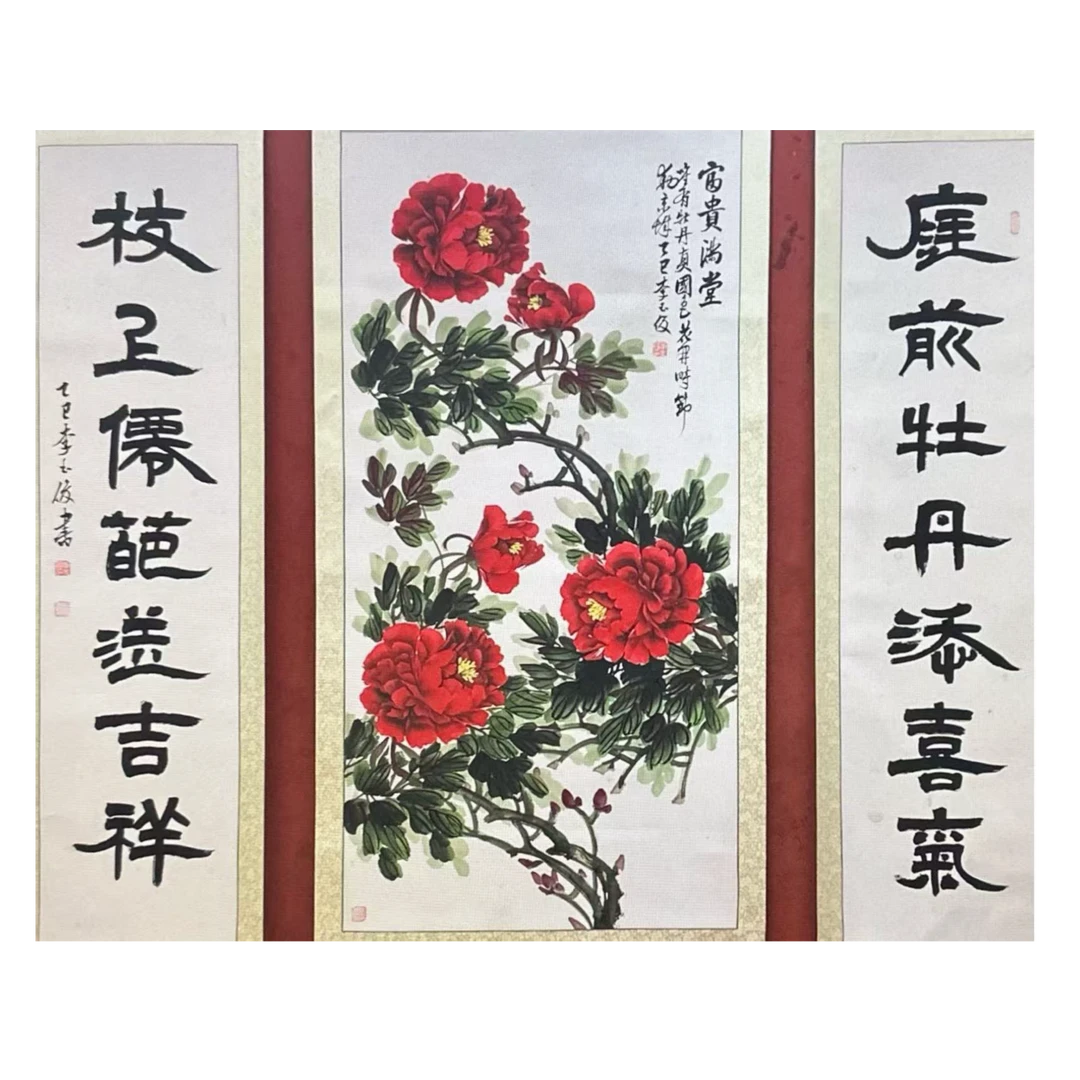 庭前牡丹添喜氣
富貴滿堂
唯有牡丹真國色花開時節
動京城乙巳李玉俊
枝上僊葩送吉祥
乙巳李玉俊書